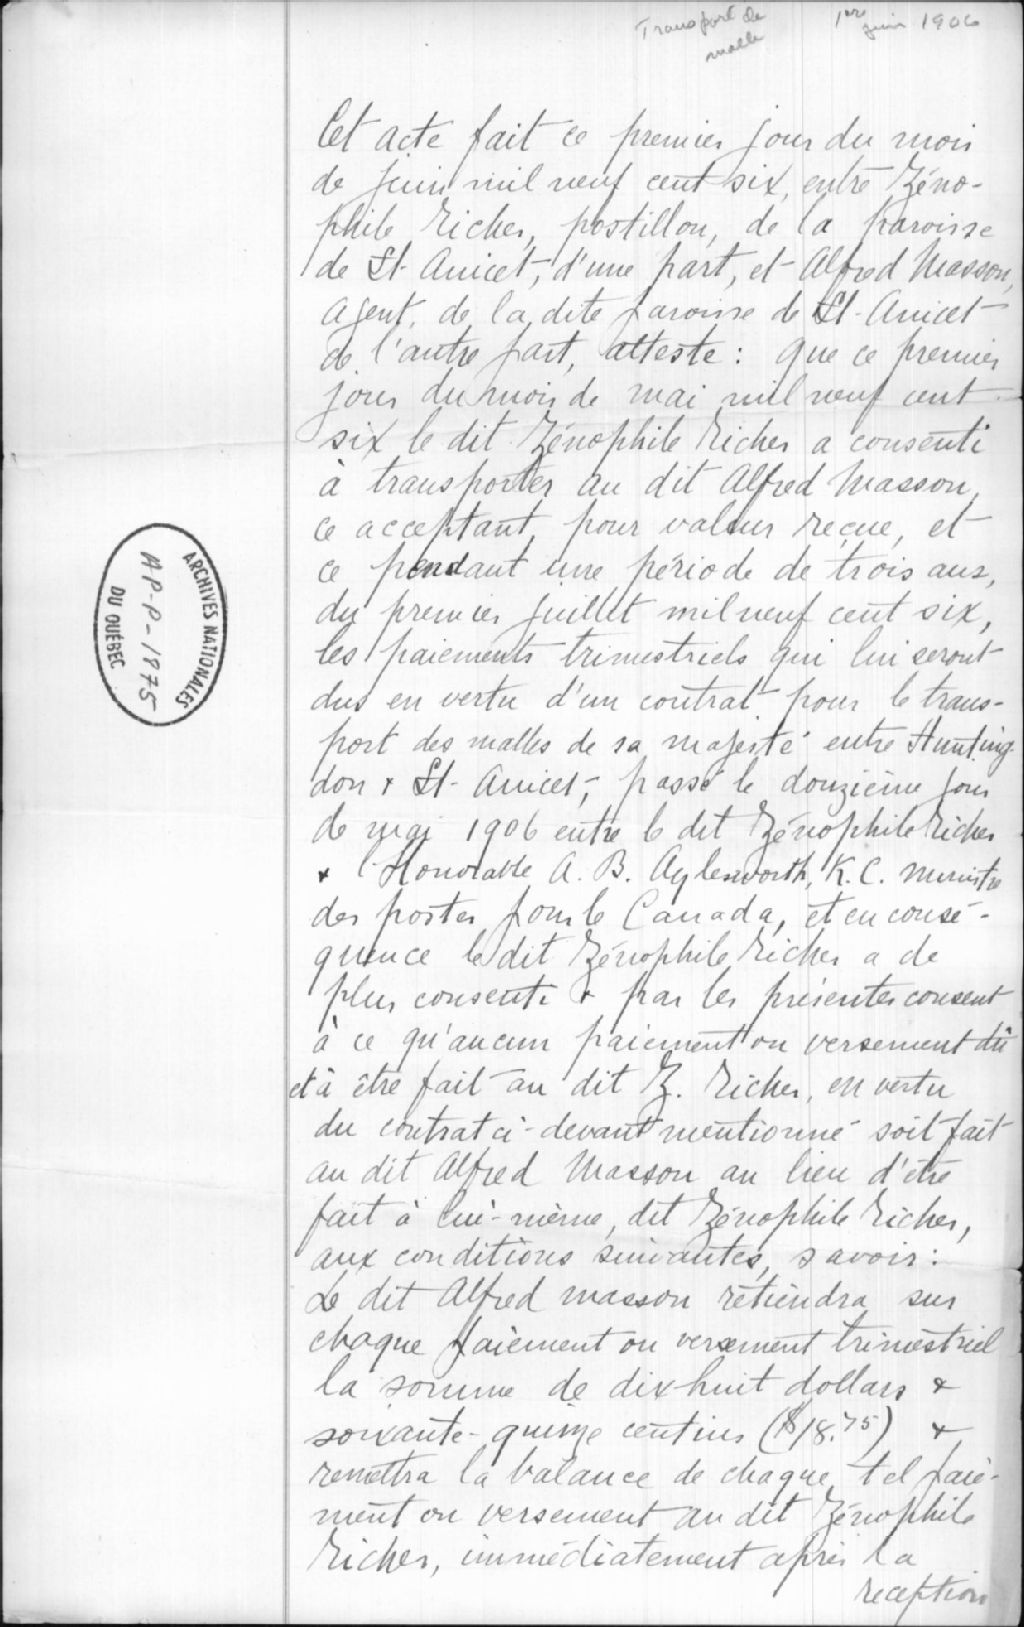 Transport de
malle
1er juin 1906
Cet acte fait ce premier jour du mois
de juin mil neuf cent six, entre Zéno-
phile Richer, postillon, de la paroisse
de St-Anicet, d'une part, et Alfred Masson,
agent, de la dite paroisse de St-Anicet
de l'autre part, atteste : que ce premier
jour du mois de mai mil neuf cent
six le dit Zénophile Richer a consenti
à transporter au dit Alfred Masson,
ce acceptant, pour valeur reçue, et
ce pendant une période de trois ans,
du premier juillet mil neuf cent six,
les paiements trimestriels qui lui seront
dus en vertu d'un contrat pour le trans-
port des malles de sa majesté entre Hunting-
don & St-Anicet, passé le douzième jour
de mai 1906 entre le dit Zénophile Richer
& l'Honorable A. B. Aylesworth, K.C. ministre
des postes pour le Canada, et en consé-
quence le dit Zénophile Richer a de
plus consenti & par les présentes consent
à ce qu'aucun paiement ou versement dû
et à être fait au dit Z. Richer, en vertu
du contrat ci-devant mentionné soit fait
au dit Alfred Masson au lieu d'être
fait à lui-même, dit Zénophile Richer,
aux conditions suivantes, savoir :
Le dit Alfred Masson retiendra sur
chaque paiement ou versement trimestriel
la somme de dix-huit dollars &
soixante-quinze centins ($18.75) &
remettra la balance de chaque tel paie-
ment ou versement au dit Zénophile
Richer, immédiatement après la
reception
ARCHIVES NATIONALES
AP-P-1875
DU QUÉBEC